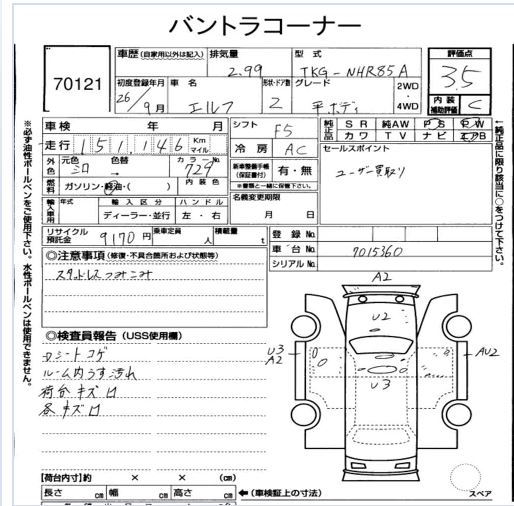 バントラコーナー
70121
車歴 (自家用以外は記入) 排気量 2.99 型式 TKG-NHR85A
評価点 3.5
初度登録年月 26/9月 車名 エルフ 形状・ドア数 2 グレード 平ボディ 2WD・4WD
内装補助評価 C
車検 年 月
走行 151,146 Km マイル
シフト F5
冷房 AC
純正品 SR 純AW PS PW
カワ TV ナビ エアB
外色 元色 シロ 色替 カラーNo. 729
燃料 ガソリン・軽油・( ) 内装色
新車整備手帳(保証書付) 有・無
※書類と一緒に保管下さい。
セールスポイント
ユーザー買取り
輸入車用 年式 輸入区分 ディーラー・並行 ハンドル 左・右
名義変更期限 月 日
リサイクル預託金 9170円 乗車定員 人 積載量 t
登録No.
車台No. 7015360
シリアルNo.
◎注意事項 (修復・不具合箇所および状態等)
スタットレスつみこみ
◎検査員報告 (USS使用欄)
Dシートコゲ
ルーム内うす汚れ
荷台キズ凹
各キズ凹
A2
U2
U3
A2
U3
AU2
スペア
【荷台内寸】約 × × (cm)
長さ cm 幅 cm 高さ cm ←(車検証上の寸法)
※必ず油性ボールペンをご使用下さい。水性ボールペンは使用できません。
←純正品に限り該当に○をつけて下さい。